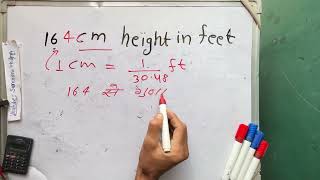 164cm height in feet
1cm = 1/30.48 ft
164 से